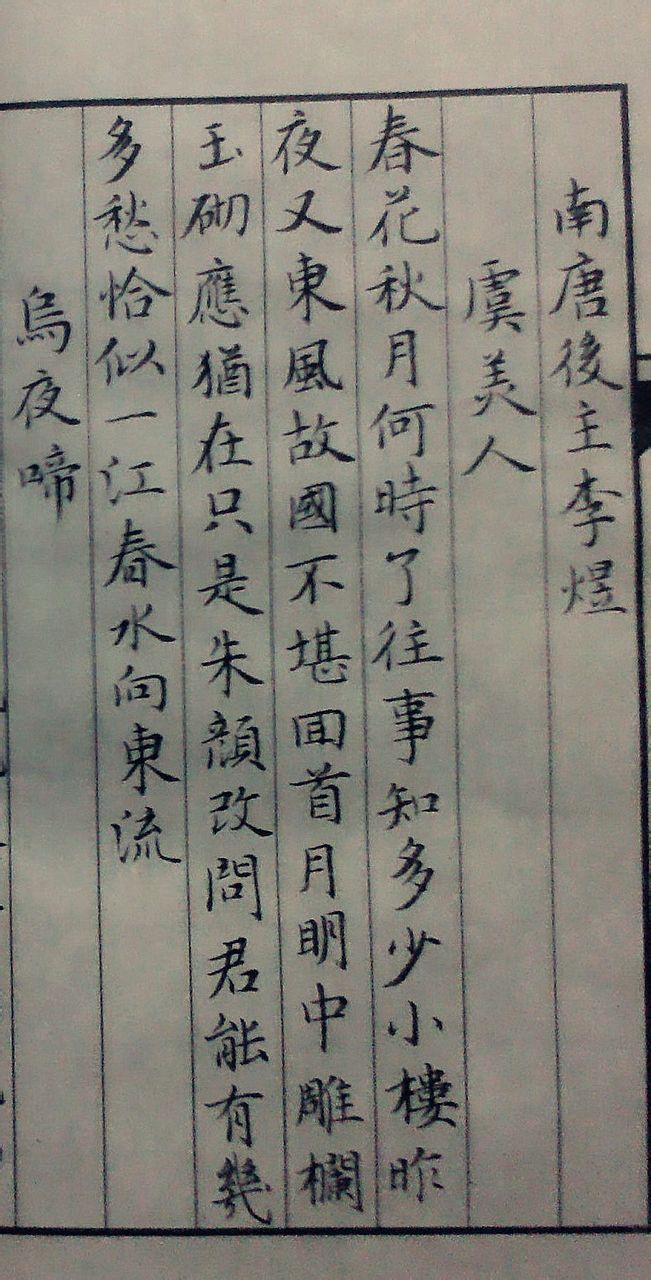 南唐後主李煜
虞美人
春花秋月何時了往事知多少小樓昨
夜又東風故國不堪回首月明中雕欄
玉砌應猶在只是朱顏改問君能有幾
多愁恰似一江春水向東流
烏夜啼